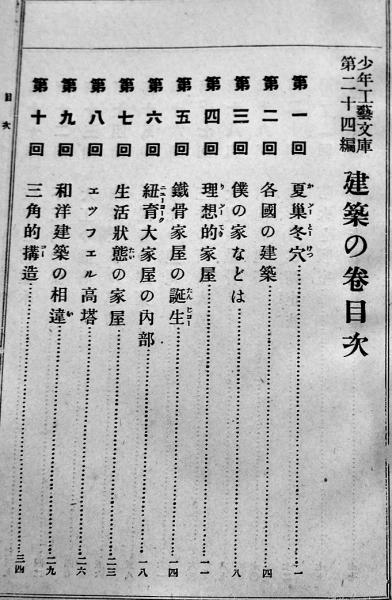 少年工藝文庫
第二十四編
建築の卷目次
第一回 夏巢冬穴 一
第二回 各國の建築 四
第三回 僕の家などは 八
第四回 理想的家屋 一一
第五回 鐵骨家屋の誕生 一四
第六回 紐育大家屋の內部 一八
第七回 生活狀態の家屋 二三
第八回 エッフェル高塔 二六
第九回 和洋建築の相違 二九
第十回 三角的搆造 三四
目次